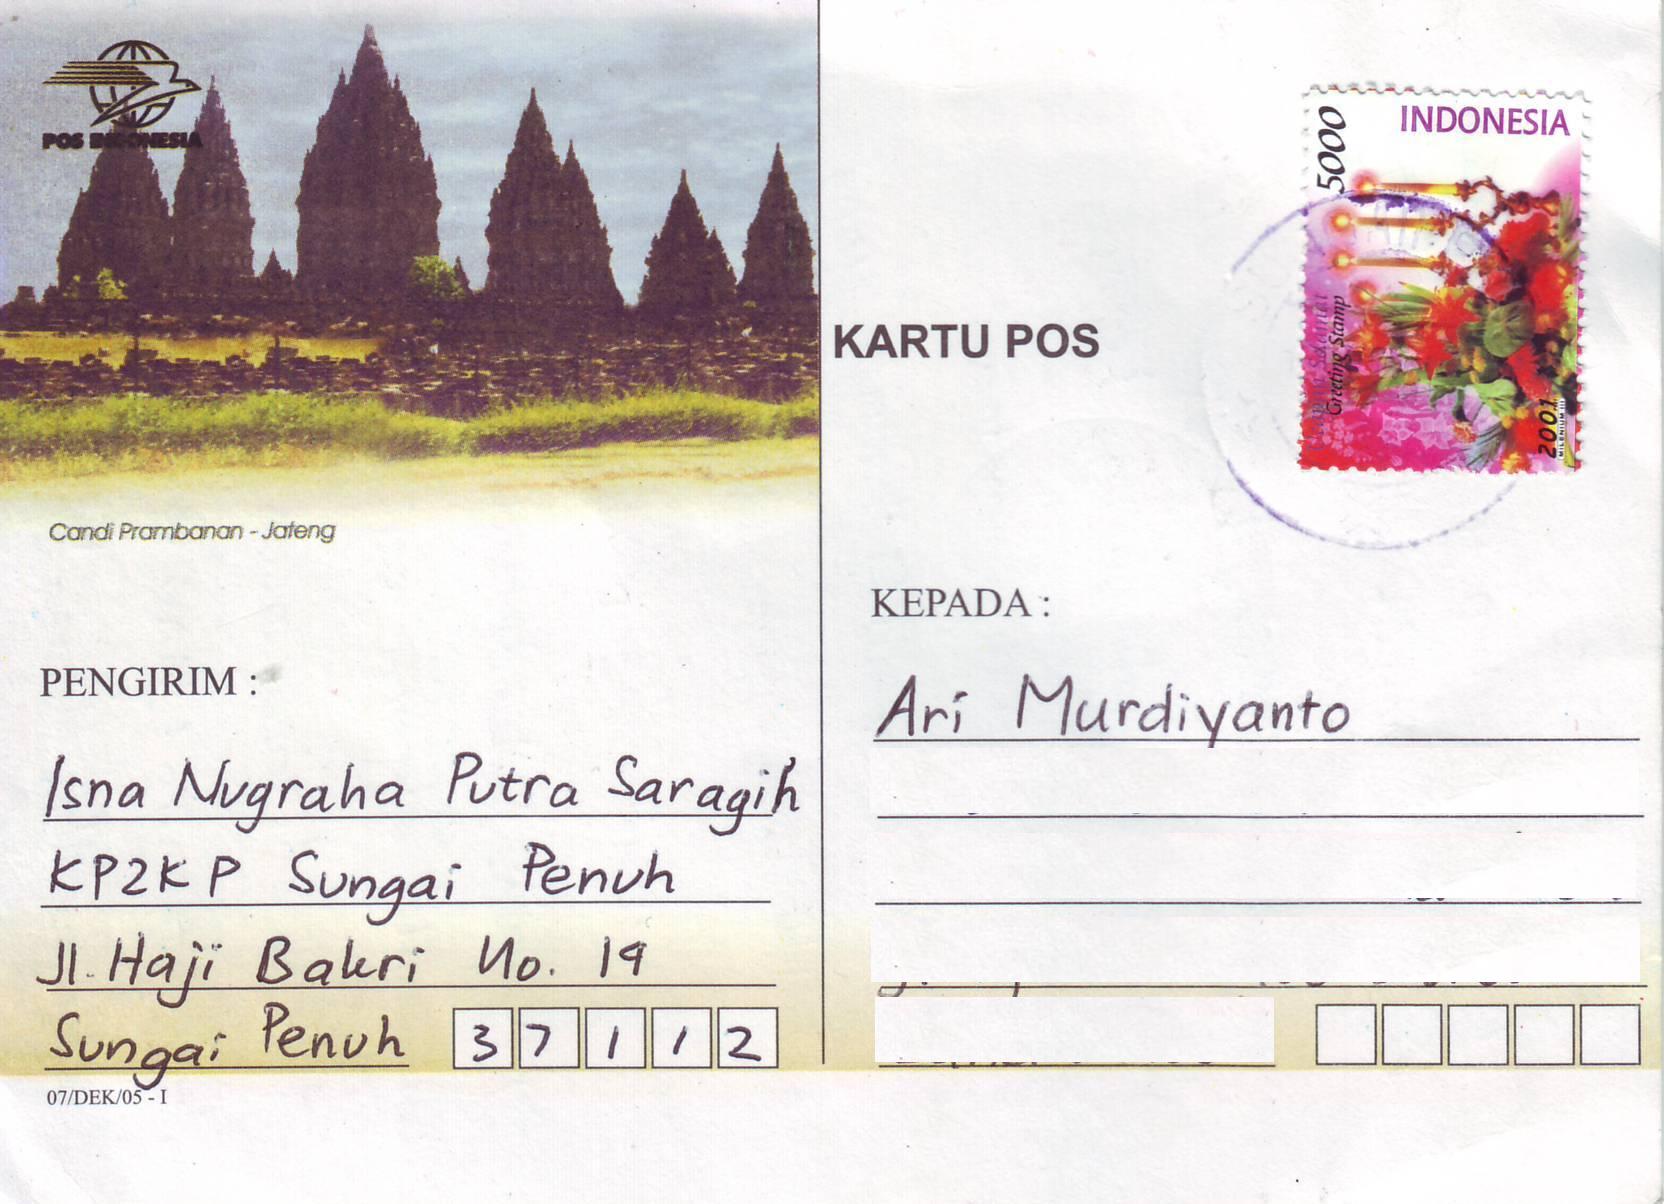 POS INDONESIA
Candi Prambanan - Jateng
PENGIRIM :
Isna Nugraha Putra Saragih
KP2KP Sungai Penuh
Jl. Haji Bakri No. 19
Sungai Penuh 3 7 1 1 2
07/DEK/05 - I
KARTU POS
INDONESIA
5000
Greeting Stamp
2001
MILENIUM III
KEPADA :
Ari Murdiyanto